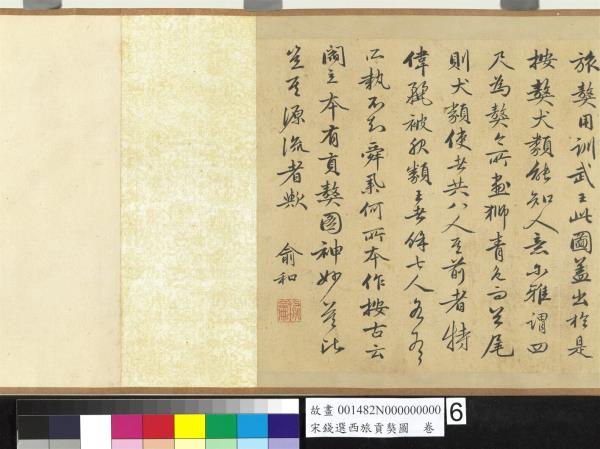 旅獒用訓武王此圖蓋出於是
按獒犬類能知人意尔雅謂四
尺為獒今所畫狮青色而巨尾
則犬類使者共八人在前者特
偉麗被服類王者余七人各有
所執不知舜舉何所本作按古云
閻立本有貢獒圖神妙豈此
豈其源流者歟
俞和
故畫 001482N000000000
宋錢選西旅貢獒圖 卷
6